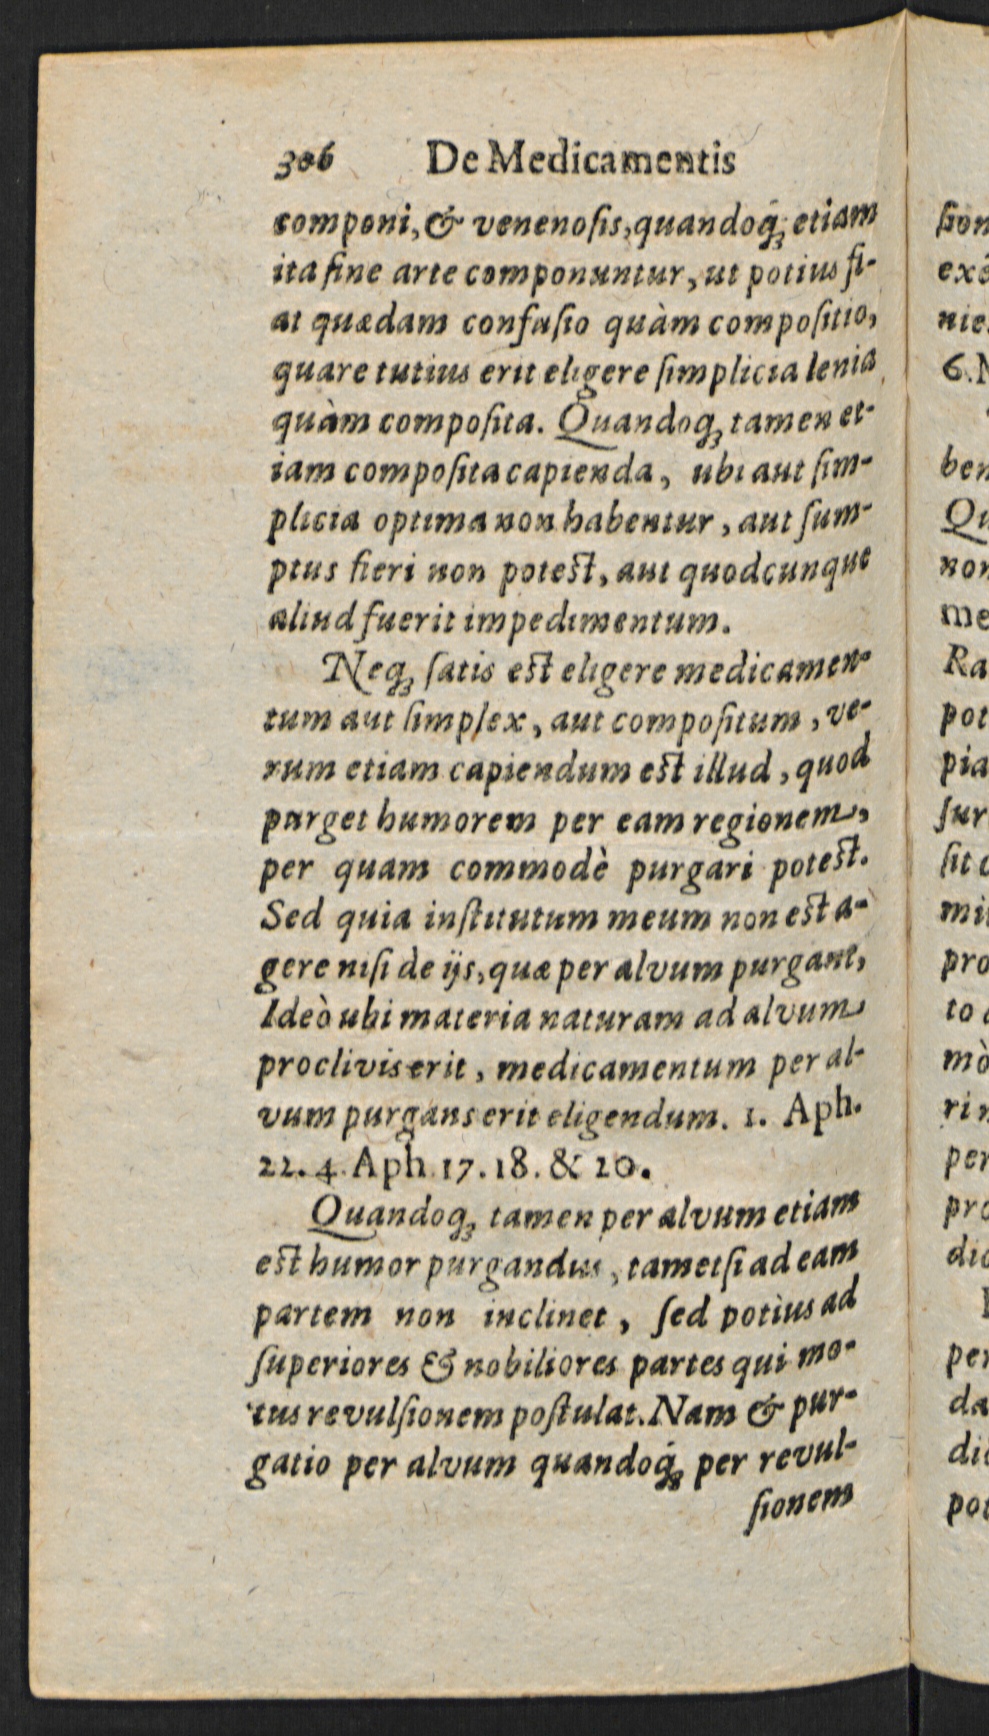 306 De Medicamentis
componi, & venenoſis, quandoq́; etiam
ita ſine arte componuntur, ut potius fi-
at quædam confuſio quàm compoſitio,
quare tutius erit eligere ſimplicia lenia
quàm compoſita. Quandoq; tamen et-
iam compoſita capienda, ubi aut ſim-
plicia optima non habentur, aut ſum-
ptus fieri non poteſt, aut quodcunque
aliud fuerit impedimentum.
Neq; ſatis eſt eligere medicamen-
tum aut ſimplex, aut compoſitum, ve-
rum etiam capiendum eſt illud, quod
purget humorem per eam regionem,
per quam commodè purgari poteſt.
Sed quia inſtitutum meum non eſt a-
gere niſi de ijs, quæ per alvum purgant,
Ideò ubi materia naturam ad alvum
proclivis erit, medicamentum per al-
vum purgans erit eligendum. 1. Aph.
22. 4. Aph. 17. 18. & 20.
Quandoq; tamen per alvum etiam
eſt humor purgandus, tametſi ad eam
partem non inclinet, ſed potiùs ad
ſuperiores & nobiliores partes qui mo-
tus revulſionem poſtulat. Nam & pur-
gatio per alvum quandoq́; per revul-
ſionem
ſion
exé
nie
6. 
ben
Qu
non
me
Ra
pot
pia
ſur
ſit
mi
pro
to
mò
ri
per
pro
dic
per
da
dic
pot